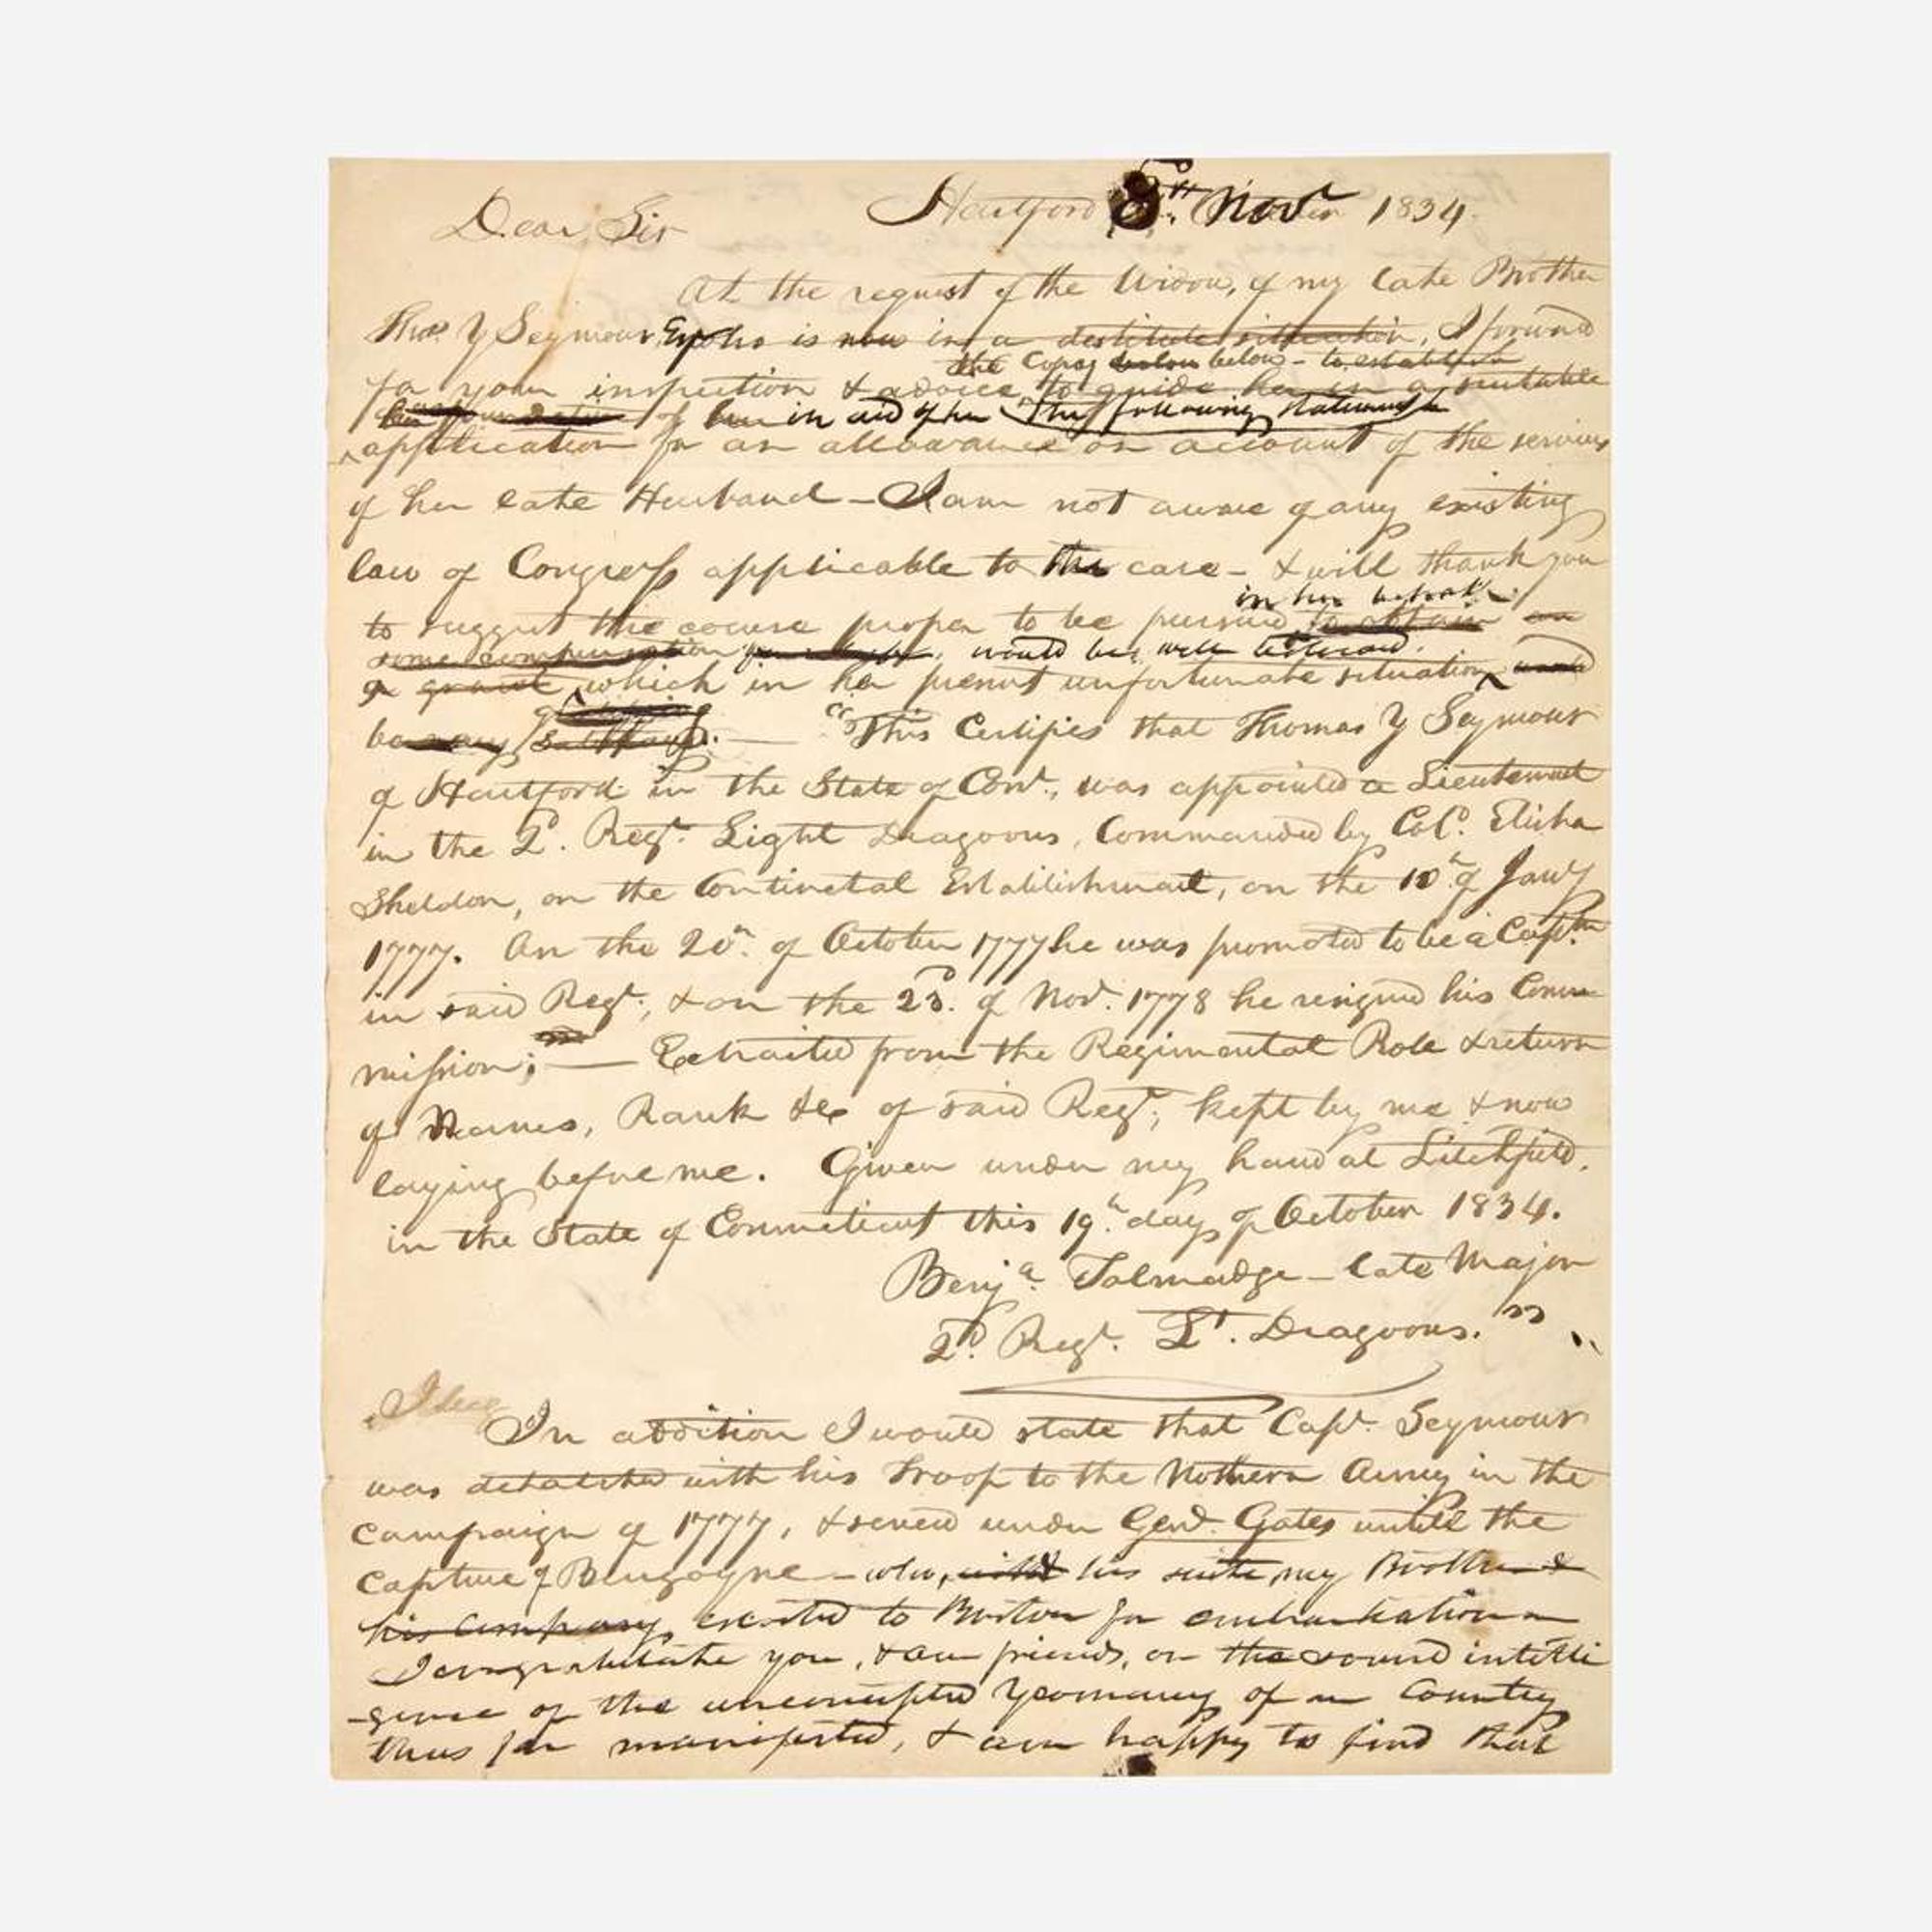 Hartford 8th. Novr 1834.
Dear Sir
At the request of the Widow, of my late Brother
Thos. Y Seymour Esq who is now in a destitute situation, I forward
the Copy below below - to establish
for your inspection & advice to guide her in a suitable
of her in aid of her The following statement
application for an allowance on account of the services
of her late Husband - I am not aware of any existing
law of Congress applicable to the case - & will thank you
in her behalf
to suggest the course proper to be pursued to obtain an
some compensation would be well bestowed.
or grant which in her present unfortunate situation would
be any "This Certifies that Thomas Y Seymour
of Hartford in the State of Cont., was appointed a Lieutenant
in the 2d. Regt. Light Dragoons, Commanded by Col. Elisha
Sheldon, on the Continetal Establishment, on the 10th of Jany
1777. On the 20th. of October 1777 he was promoted to be a Captn
in said Regt., & on the 23d. of Nov. 1778 he resigned his Com
mission; — Extracted from the Regimental Role & return
of Names, Rank &c of said Regt, kept by me & now
laying before me. Given under my hand at Litchfield.
in the State of Connecticut this 19th. day of October 1834.
Benja. Talmadge - late Major
2d. Regt. Lt. Dragoons."
I
In addition I would state that Capt. Seymour
was detatched with his Troop to the Nothern Army in the
campaign of 1777, & served under Genl. Gates untill the
capture of Burgoyne - who, with his suite, my Brother &
his company escorted to Boston for embarkation
I congratulate you, & our friends, on the sound intelli
-gence of the uncorrupted Yeomanry of our Country
thus far manifested, & am happy to find that